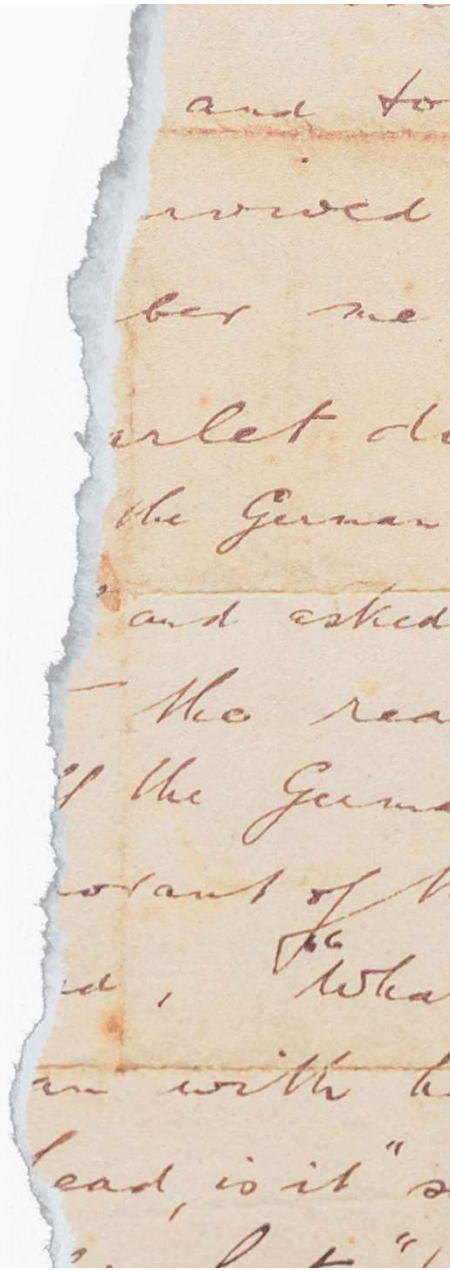 and to
rvived
ber me
arlet do
the German
" and asked
the rea
ff the Germa
norant of th
id, "Wha
an with h
ead, is it" s